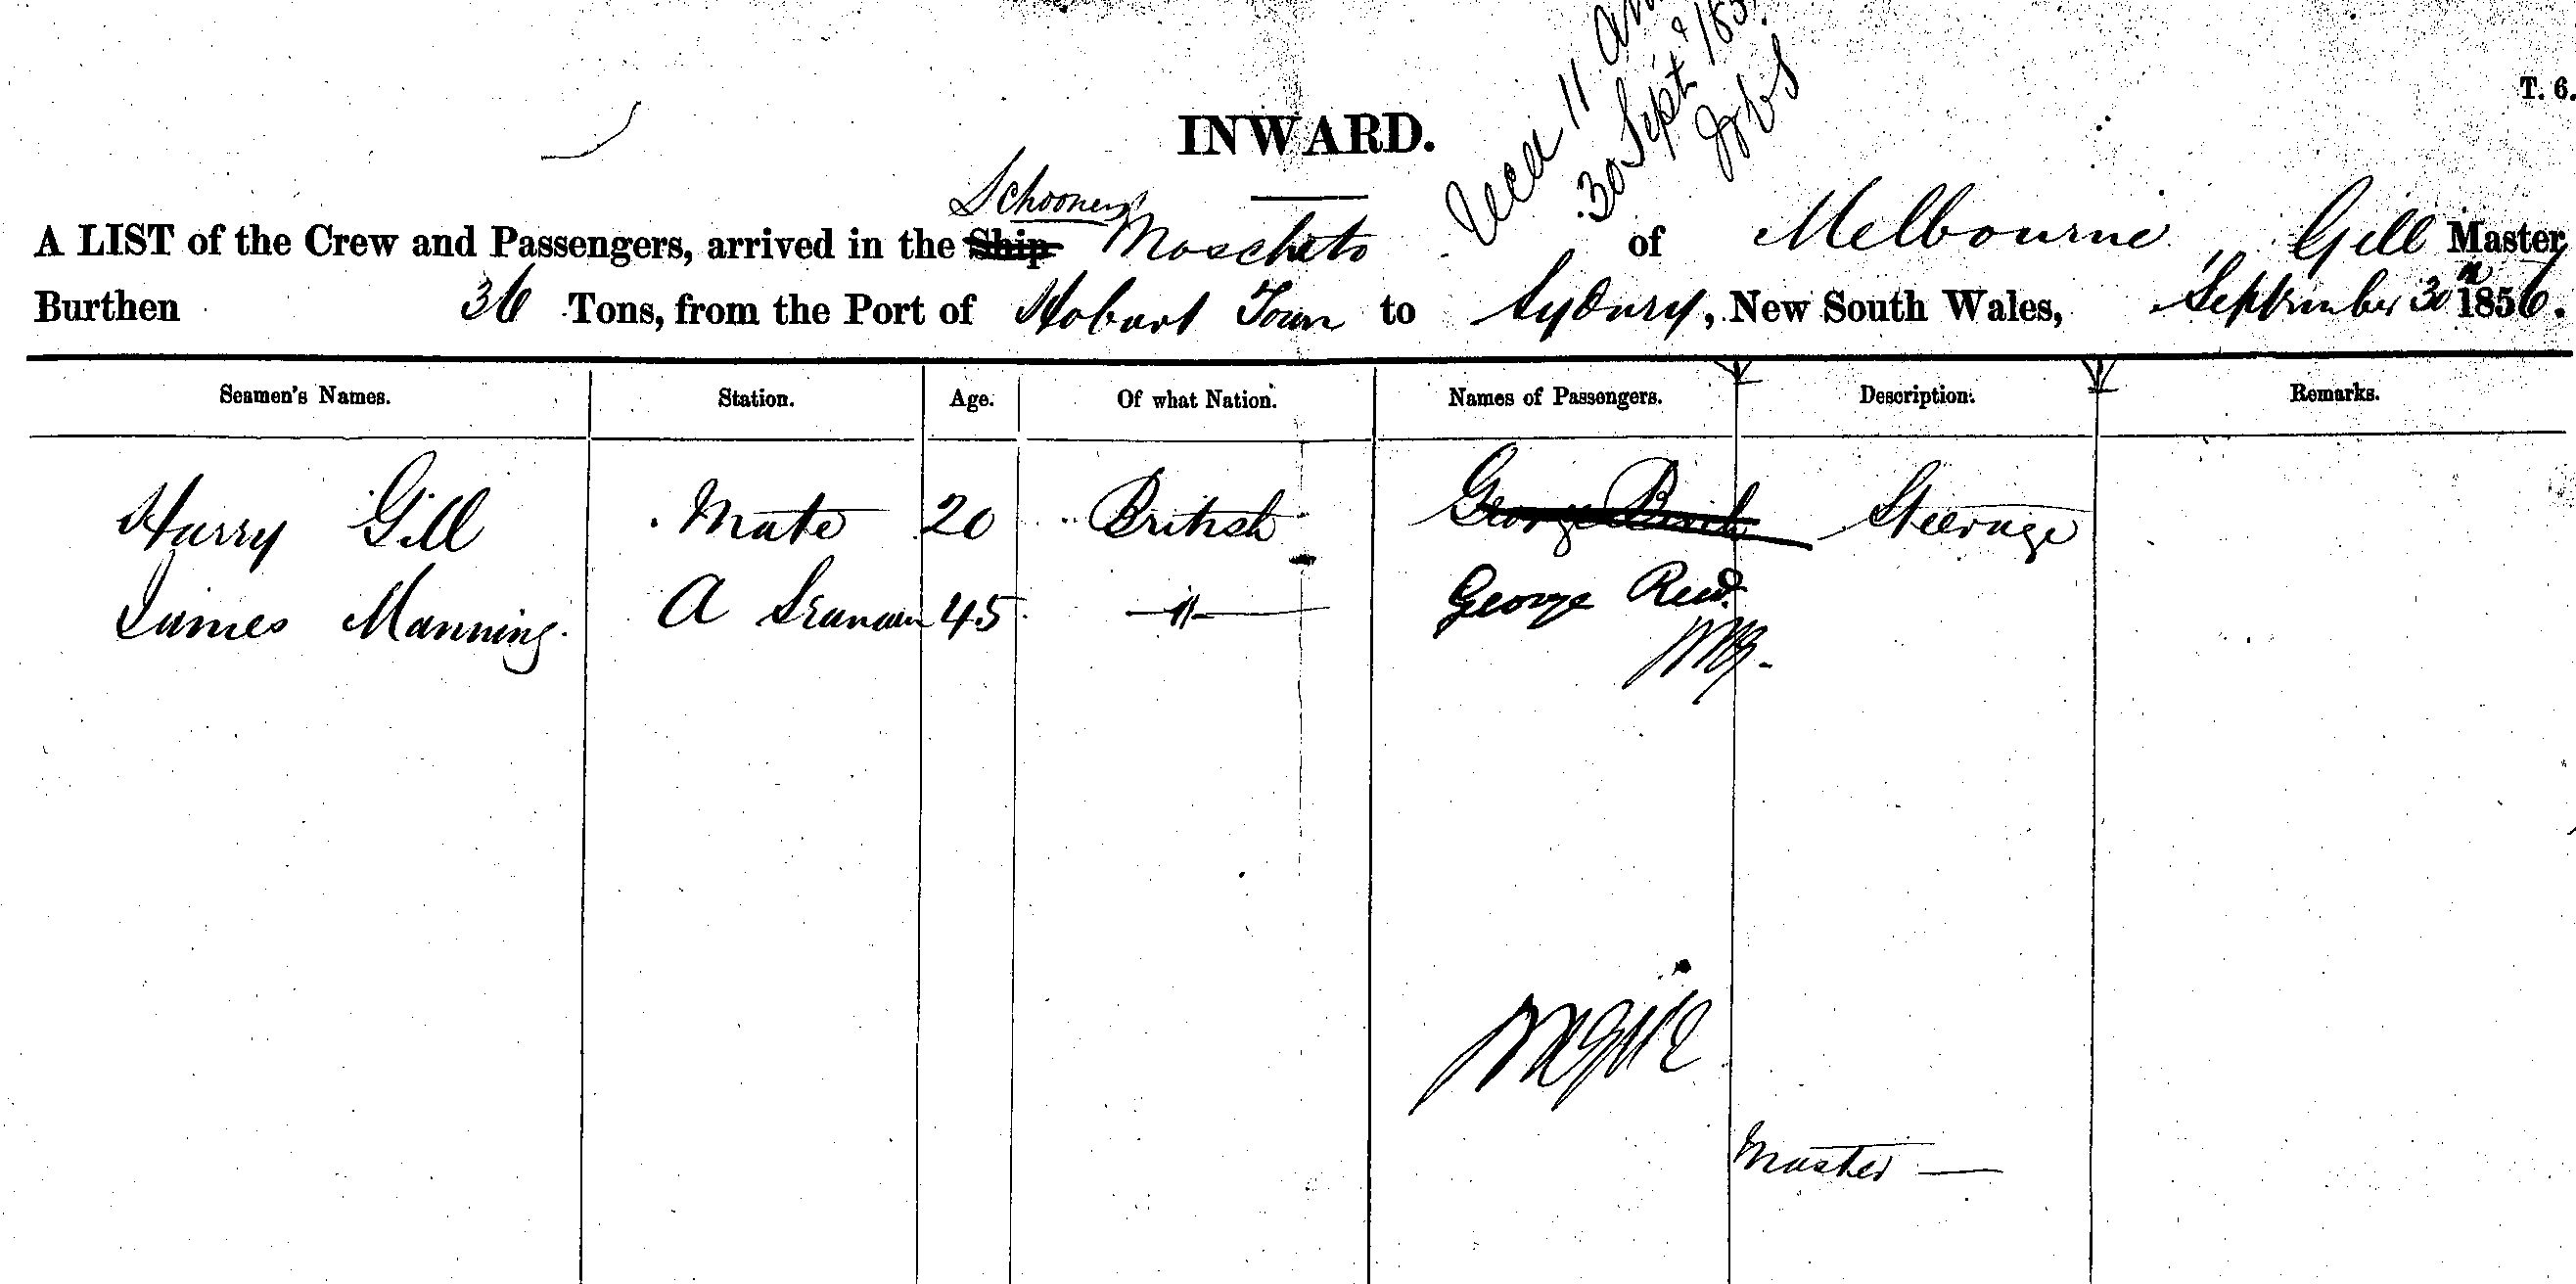 T. 6.
Recd 11 am
30 Sept 185
INWARD.
Schooner
A LIST of the Crew and Passengers, arrived in the Ship Moscheto of Melbourne, Gill Master,
Burthen 36 Tons, from the Port of Hobart Town to Sydney, New South Wales, September 30th 1856.
Seamen's Names. Station. Age. Of what Nation. Names of Passengers. Description. Remarks.
Harry Gill Mate 20 British George Steerage
James Manning. A Seaman 45 —"— George Reid.
WG.
WGill
Master —